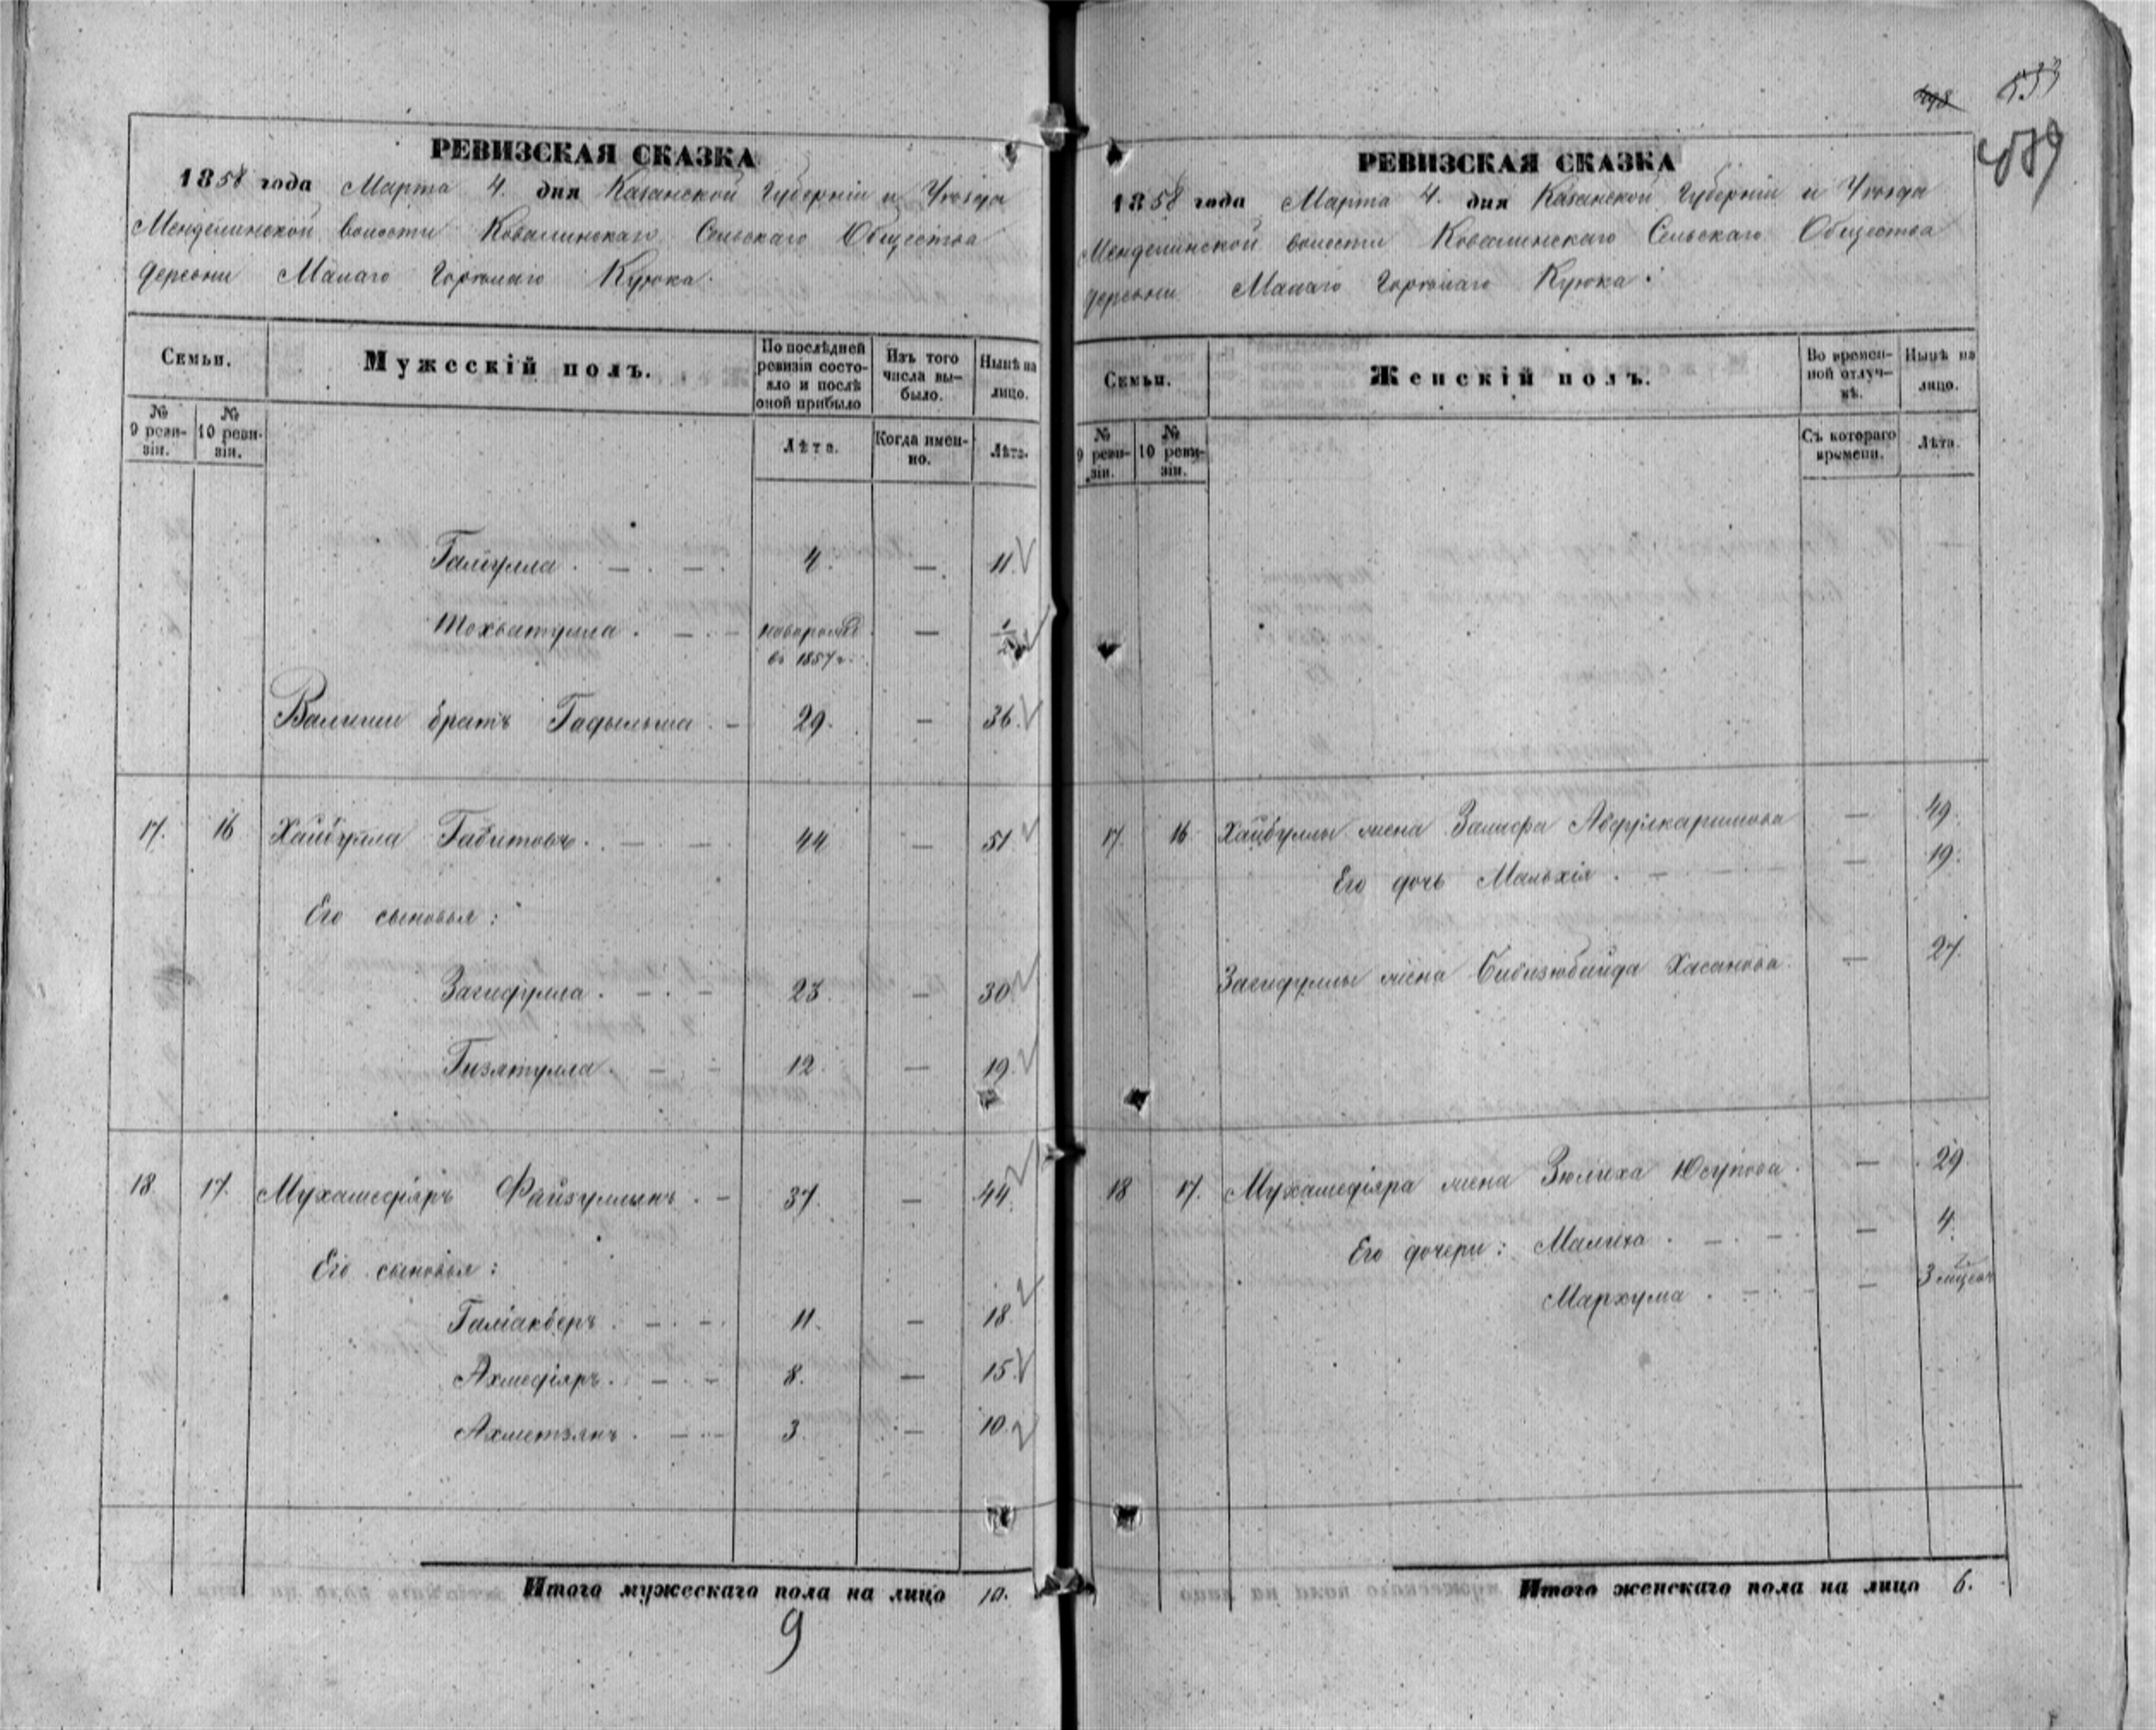 РЕВИЗСКАЯ СКАЗКА
1858 года Марта 4. дня Казанской Губерніи и Уѣзда
Менделинской волости Ковалинскаго Сельскаго Общества
деревни Малаго Горѣлаго Куюка.
Семьи.
Мужескій полъ.
По послѣдней ревизіи состо-
яло и послѣ
оной прибыло
Изъ того
числа вы-
было.
Нынѣ на
лицо.
№
9 реви-
зіи.
№
10 реви-
зіи.
Лѣта.
Когда имен-
но.
Лѣта.
Галіулла . — . — . 4. — 11.
Тохватулла . — . — новорожд — 1/2
въ 1857 г.
Валиши братъ Гадыльша . — 29. — 36.
17. 16 Хайбулла Габитовъ . . — . — 44 — 51
Его сыновья :
Загидулла . — . — 23. — 30
Гизятулла . — . — 12. — 19.
18 17. Мухамедіяръ Файзуллинъ . — 37. — 44.
Его сыновья :
Галіакберъ . — . — . 11. — 18
Ахмедіяръ . — . — 8. — 15.
Ахметзянъ . — . — 3. — 10.
Итого мужескаго пола на лицо 10.
9
498 533
489
РЕВИЗСКАЯ СКАЗКА
1858 года Марта 4. дня Казанской Губерніи и Уѣзда
Менделинской волости Ковалинскаго Сельскаго Общества
деревни Малаго Горѣлаго Куюка.
Семьи.
Женскій полъ.
Во времен-
ной отлуч-
кѣ.
Нынѣ на
лицо.
№
9 реви-
зіи.
№
10 реви-
зіи.
Съ котораго
времени.
Лѣта.
17. 16 Хайбуллы жена Залифа Абдулкаримова — 49.
Его дочь Мальхія . — — 19.
Загидуллы жена Бибизюбайда Хасанова. — 27.
18 17. Мухамедіяра жена Зюлиха Юсупова . — 29.
Его дочери : Малиха . — . — . — 4.
Мархума . — . — — 3 мѣсяч
Итого женскаго пола на лицо 6.